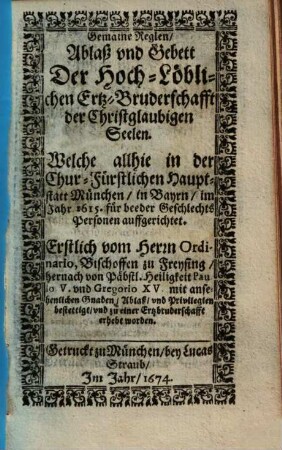 Gemaine Reglen/
Ablaß vnd Gebett
Der Hoch-Löbli-
chen Ertz-Bruderschafft
der Christglaubigen
Seelen.
Welche allhie in der
Chur-Fürstlichen Haupt-
statt München / in Bayrn / im
Jahr 1615. für beeder Geschlechts
Personen auffgerichtet.
Erstlich vom Herrn Ordi-
nario, Bischoffen zu Freysing /
hernach von Päbstl. Heiligkeit Pau
lo V. vnd Gregorio XV. mit anse-
henlichen Gnaden / Ablaß / vnd Privilegien
bestettigt / vnd zu einer Ertzbruderschafft
erhebt worden.
Getruckt zu München / bey Lucas
Straub /
Im Jahr / 1674.